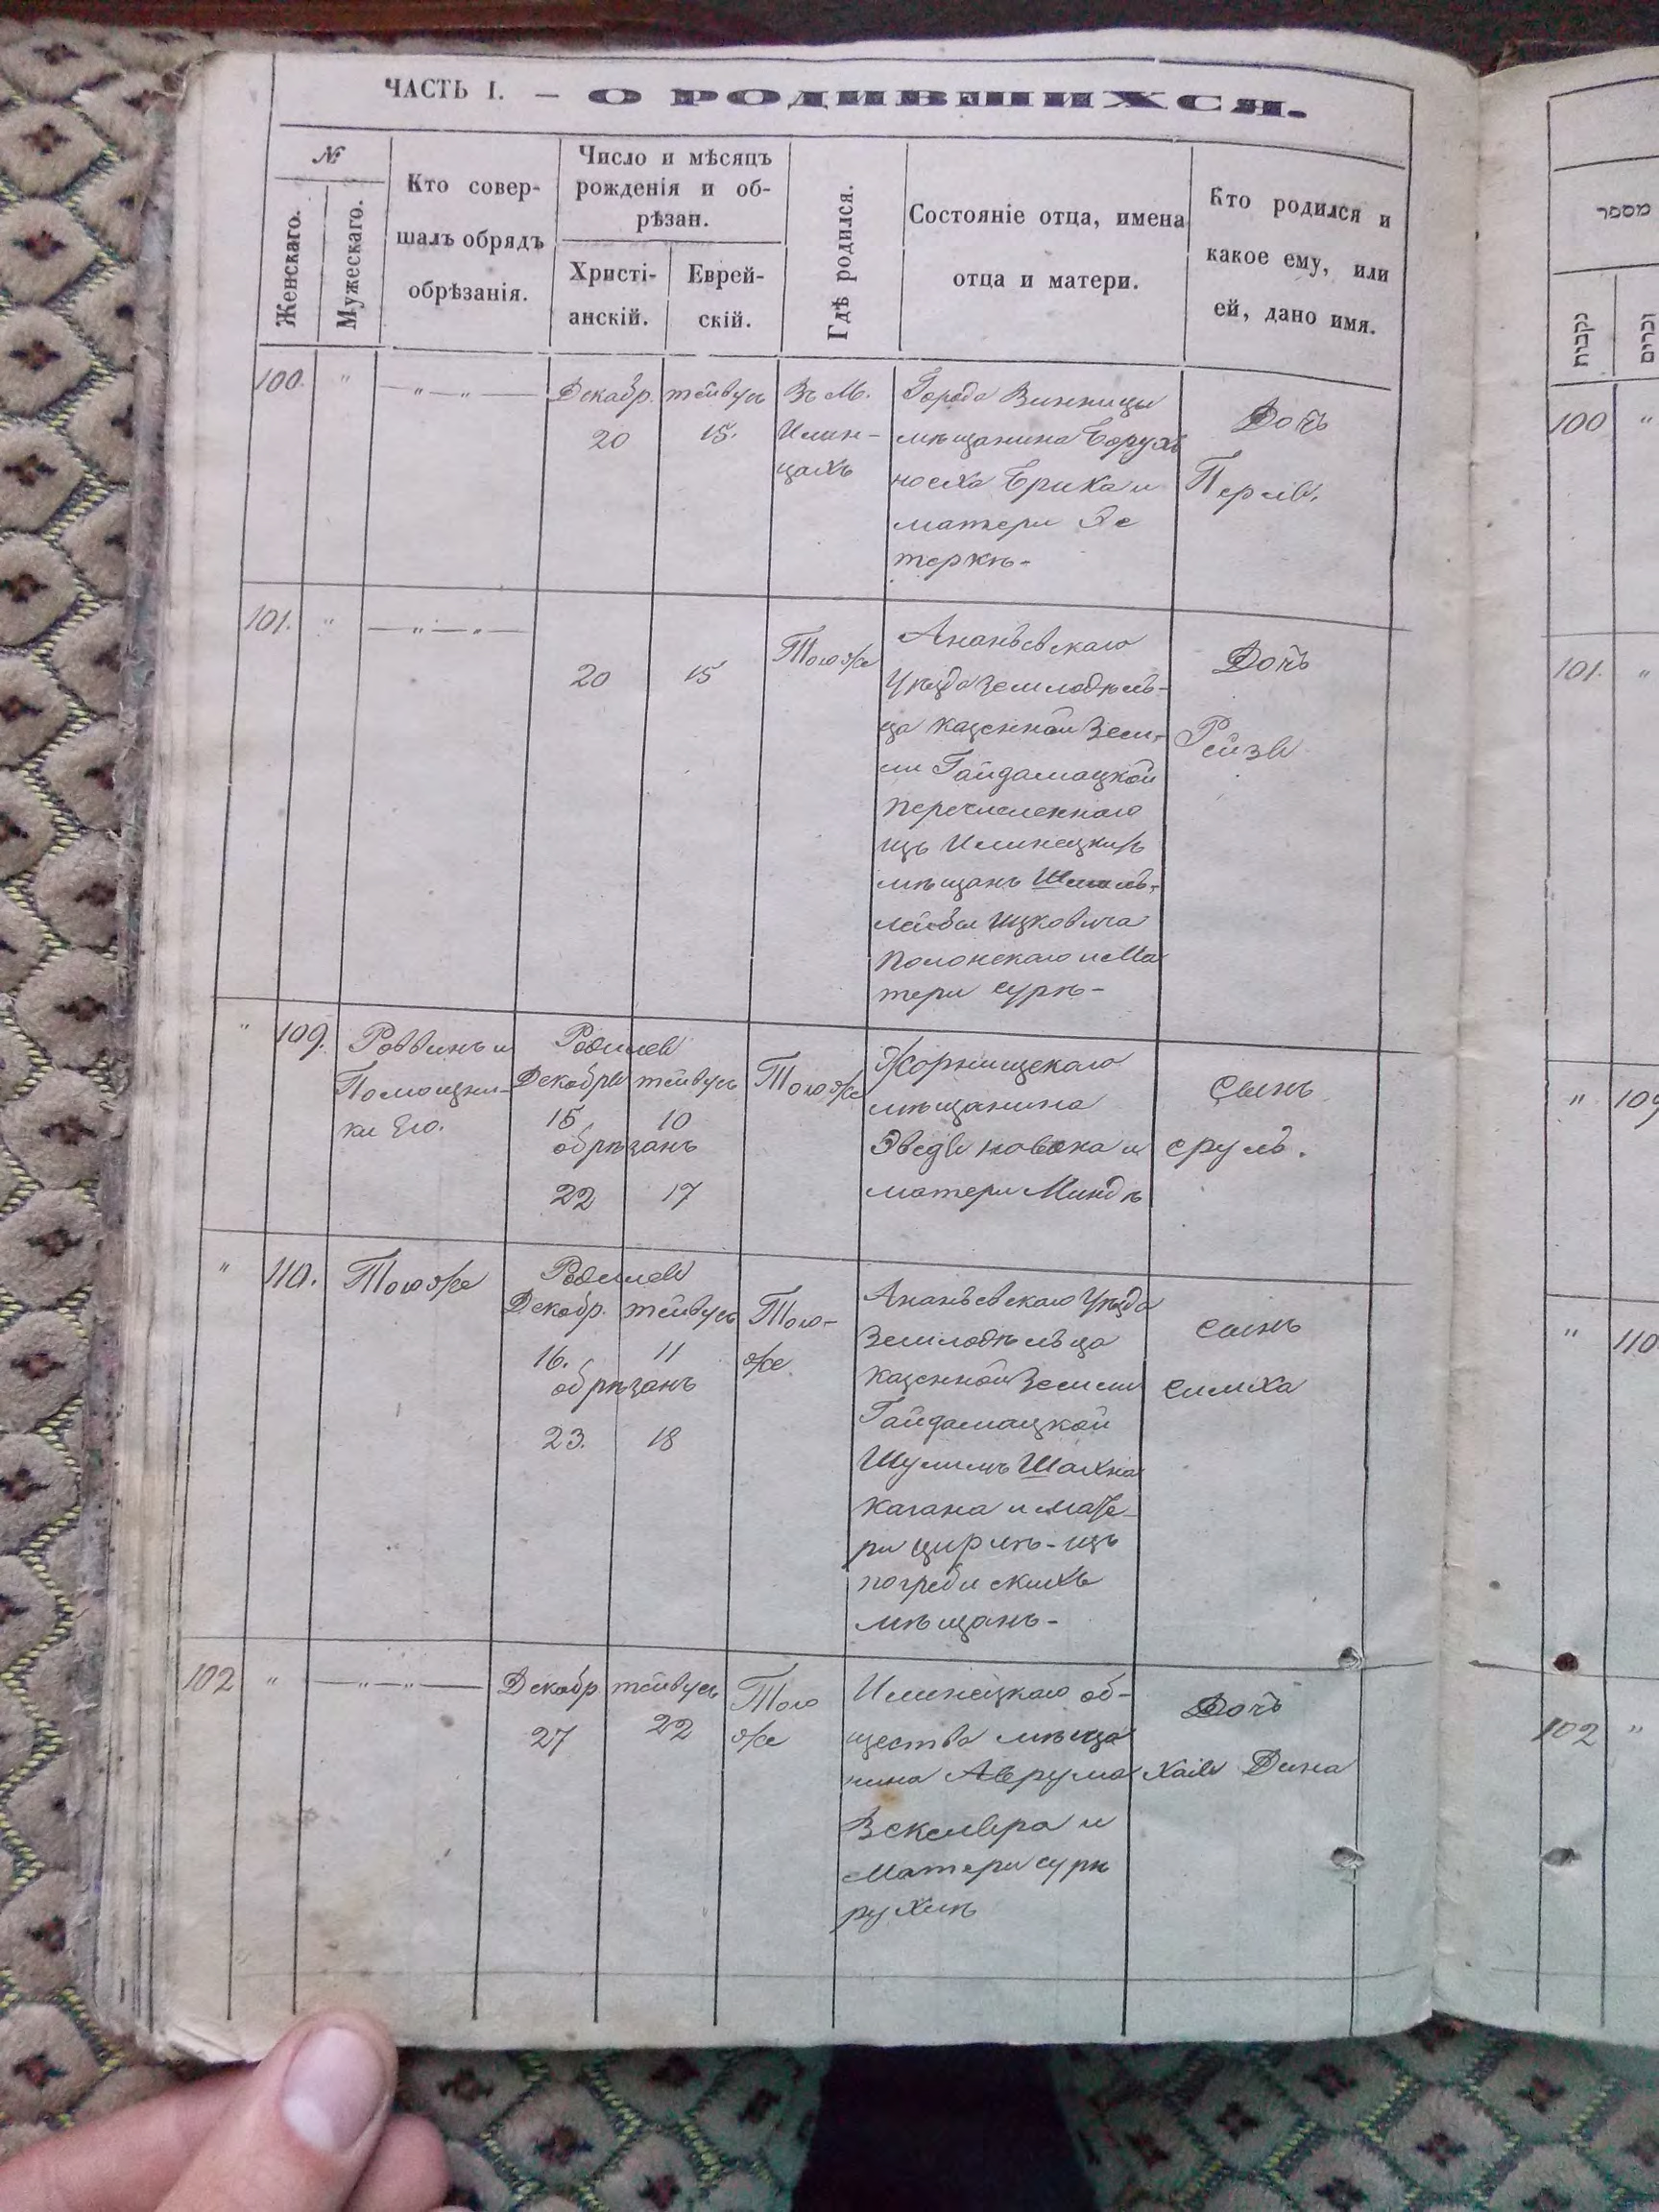 ЧАСТЬ I. — О РОДИВШИХСЯ.
№
Женскаго.
Мужескаго.
Кто совер-
шалъ обрядъ
обрѣзанія.
Число и мѣсяцъ
рожденія и об-
рѣзан.
Христі-
анскій.
Еврей-
скій.
Гдѣ родился.
Состояніе отца, имена
отца и матери.
Кто родился и
какое ему, или
ей, дано имя.
100. " —"—"—
Декабр. 20
тейвусъ 15.
Въ М.
Илин-
цахъ
Города Винницы
мѣщанина Борухъ
Эс
матери
теркѣ-
Дочь
Перля.
101. " —"—"—
20
15
Тогоже
Ананьевскаго
Уѣзда земледѣль-
ца казенной Зем-
ли Гайдамацкой
перечисленнаго
изъ Илинецкихъ
мѣщанъ Шмиль-
лейбы Ицковича
Полонскаго и Ма
тери сурѣ-
Дочь
Рейзя
" 109.
Раввинъ и
Помощни-
ки Его.
Родился
Декабря 15
тейвусъ 10
обрѣзанъ
22
17
Тогоже
Жорнищскаго
мѣщанина
и
матери Миндѣ
Сынъ
сруль.
" 110.
Тогоже
Родился
Декабр. 16.
тейвусъ 11
обрѣзанъ
23.
18
Того-
же
Ананьевскаго Уѣзда
Земледѣльца
казенной Земли
Гайдамацкой
Шулимъ Шахна
Кагана и мате-
ри цирлѣ-изъ
погребискихъ
мѣщанъ-
сынъ
симха
102 " —"—"—
Декабр. 27
тейвусъ 22
Того
же
Илинецкаго об-
щества мѣща
нина Аврума
Векслера и
матери сурѣ
рухлѣ
Дочь
Хая Дина
מספר
נקבות
זכרים
100 "
101. "
" 109
" 110
102 "